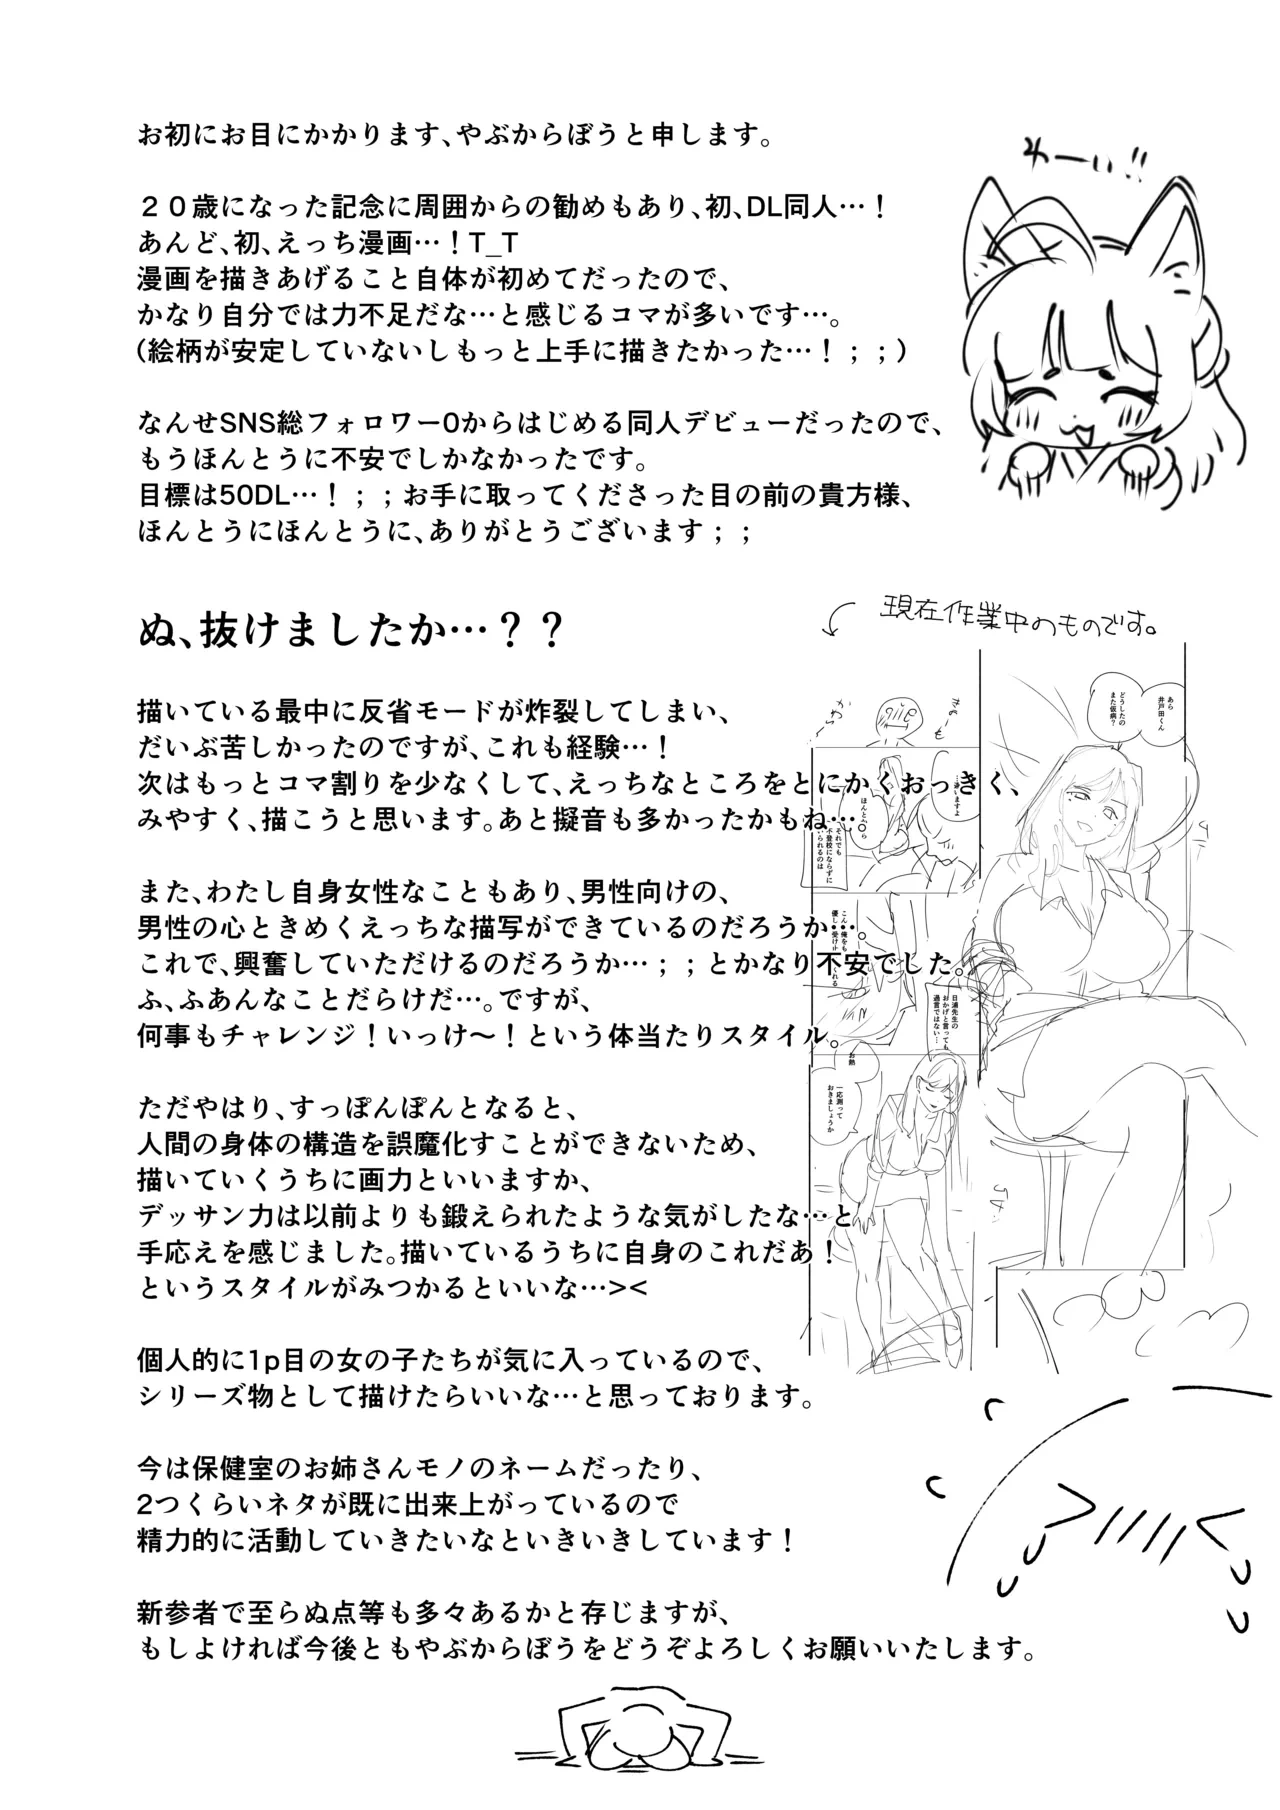 お初にお目にかかります、やぶからぼうと申します。
わーい!!
２０歳になった記念に周囲からの勧めもあり、初、DL同人…！
あんど、初、えっち漫画…！T_T
漫画を描きあげること自体が初めてだったので、
かなり自分では力不足だな…と感じるコマが多いです…。
(絵柄が安定していないしもっと上手に描きたかった…！；；)
なんせSNS総フォロワー0からはじめる同人デビューだったので、
もうほんとうに不安でしかなかったです。
目標は50DL…！；；お手に取ってくださった目の前の貴方様、
ほんとうにほんとうに、ありがとうございます；；
ぬ、抜けましたか…？？
現在作業中のものです。
描いている最中に反省モードが炸裂してしまい、
だいぶ苦しかったのですが、これも経験…！
次はもっとコマ割りを少なくして、えっちなところをとにかくおっきく、
みやすく、描こうと思います。あと擬音も多かったかもね…。
また、わたし自身女性なこともあり、男性向けの、
男性の心ときめくえっちな描写ができているのだろうか…。
これで、興奮していただけるのだろうか…；；とかなり不安でした。
ふ、ふあんなことだらけだ…。ですが、
何事もチャレンジ！いっけ～！という体当たりスタイル。
ただやはり、すっぽんぽんとなると、
人間の身体の構造を誤魔化すことができないため、
描いていくうちに画力といいますか、
デッサン力は以前よりも鍛えられたような気がしたな…と
手応えを感じました。描いているうちに自身のこれだあ！
というスタイルがみつかるといいな…><
個人的に1p目の女の子たちが気に入っているので、
シリーズ物として描けたらいいな…と思っております。
今は保健室のお姉さんモノのネームだったり、
2つくらいネタが既に出来上がっているので
精力的に活動していきたいなといきいきしています！
新参者で至らぬ点等も多々あるかと存じますが、
もしよければ今後ともやぶからぼうをどうぞよろしくお願いいたします。
あら
井戸田くん
どうしたの
また仮病？
それでも
不登校にならずに
いられるのは
日浦先生の
おかげと言っても
過言ではない…
お熱
一応測って
おきましょうか